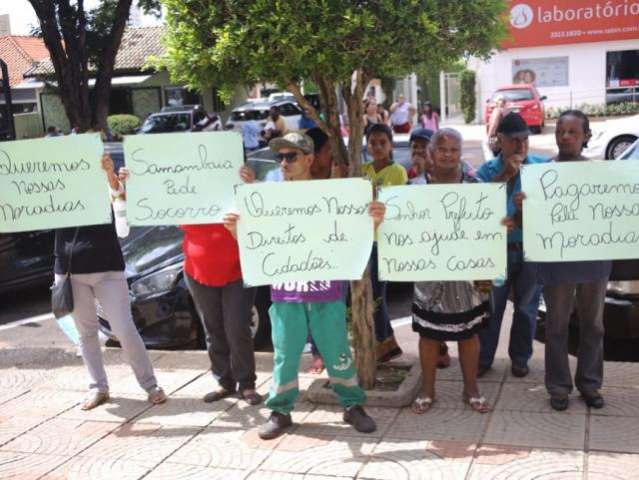 laboratório
3323.1820 • www.sabin.com
Queremos
Nossas
Moradias
Samambaia
Pede
Socorro
Queremos Nossos
Direitos de
Cidadões
Senhor Prefeito
nos ajude em
Nossas Casas
Pagaremos
Pela Nossa
Moradia